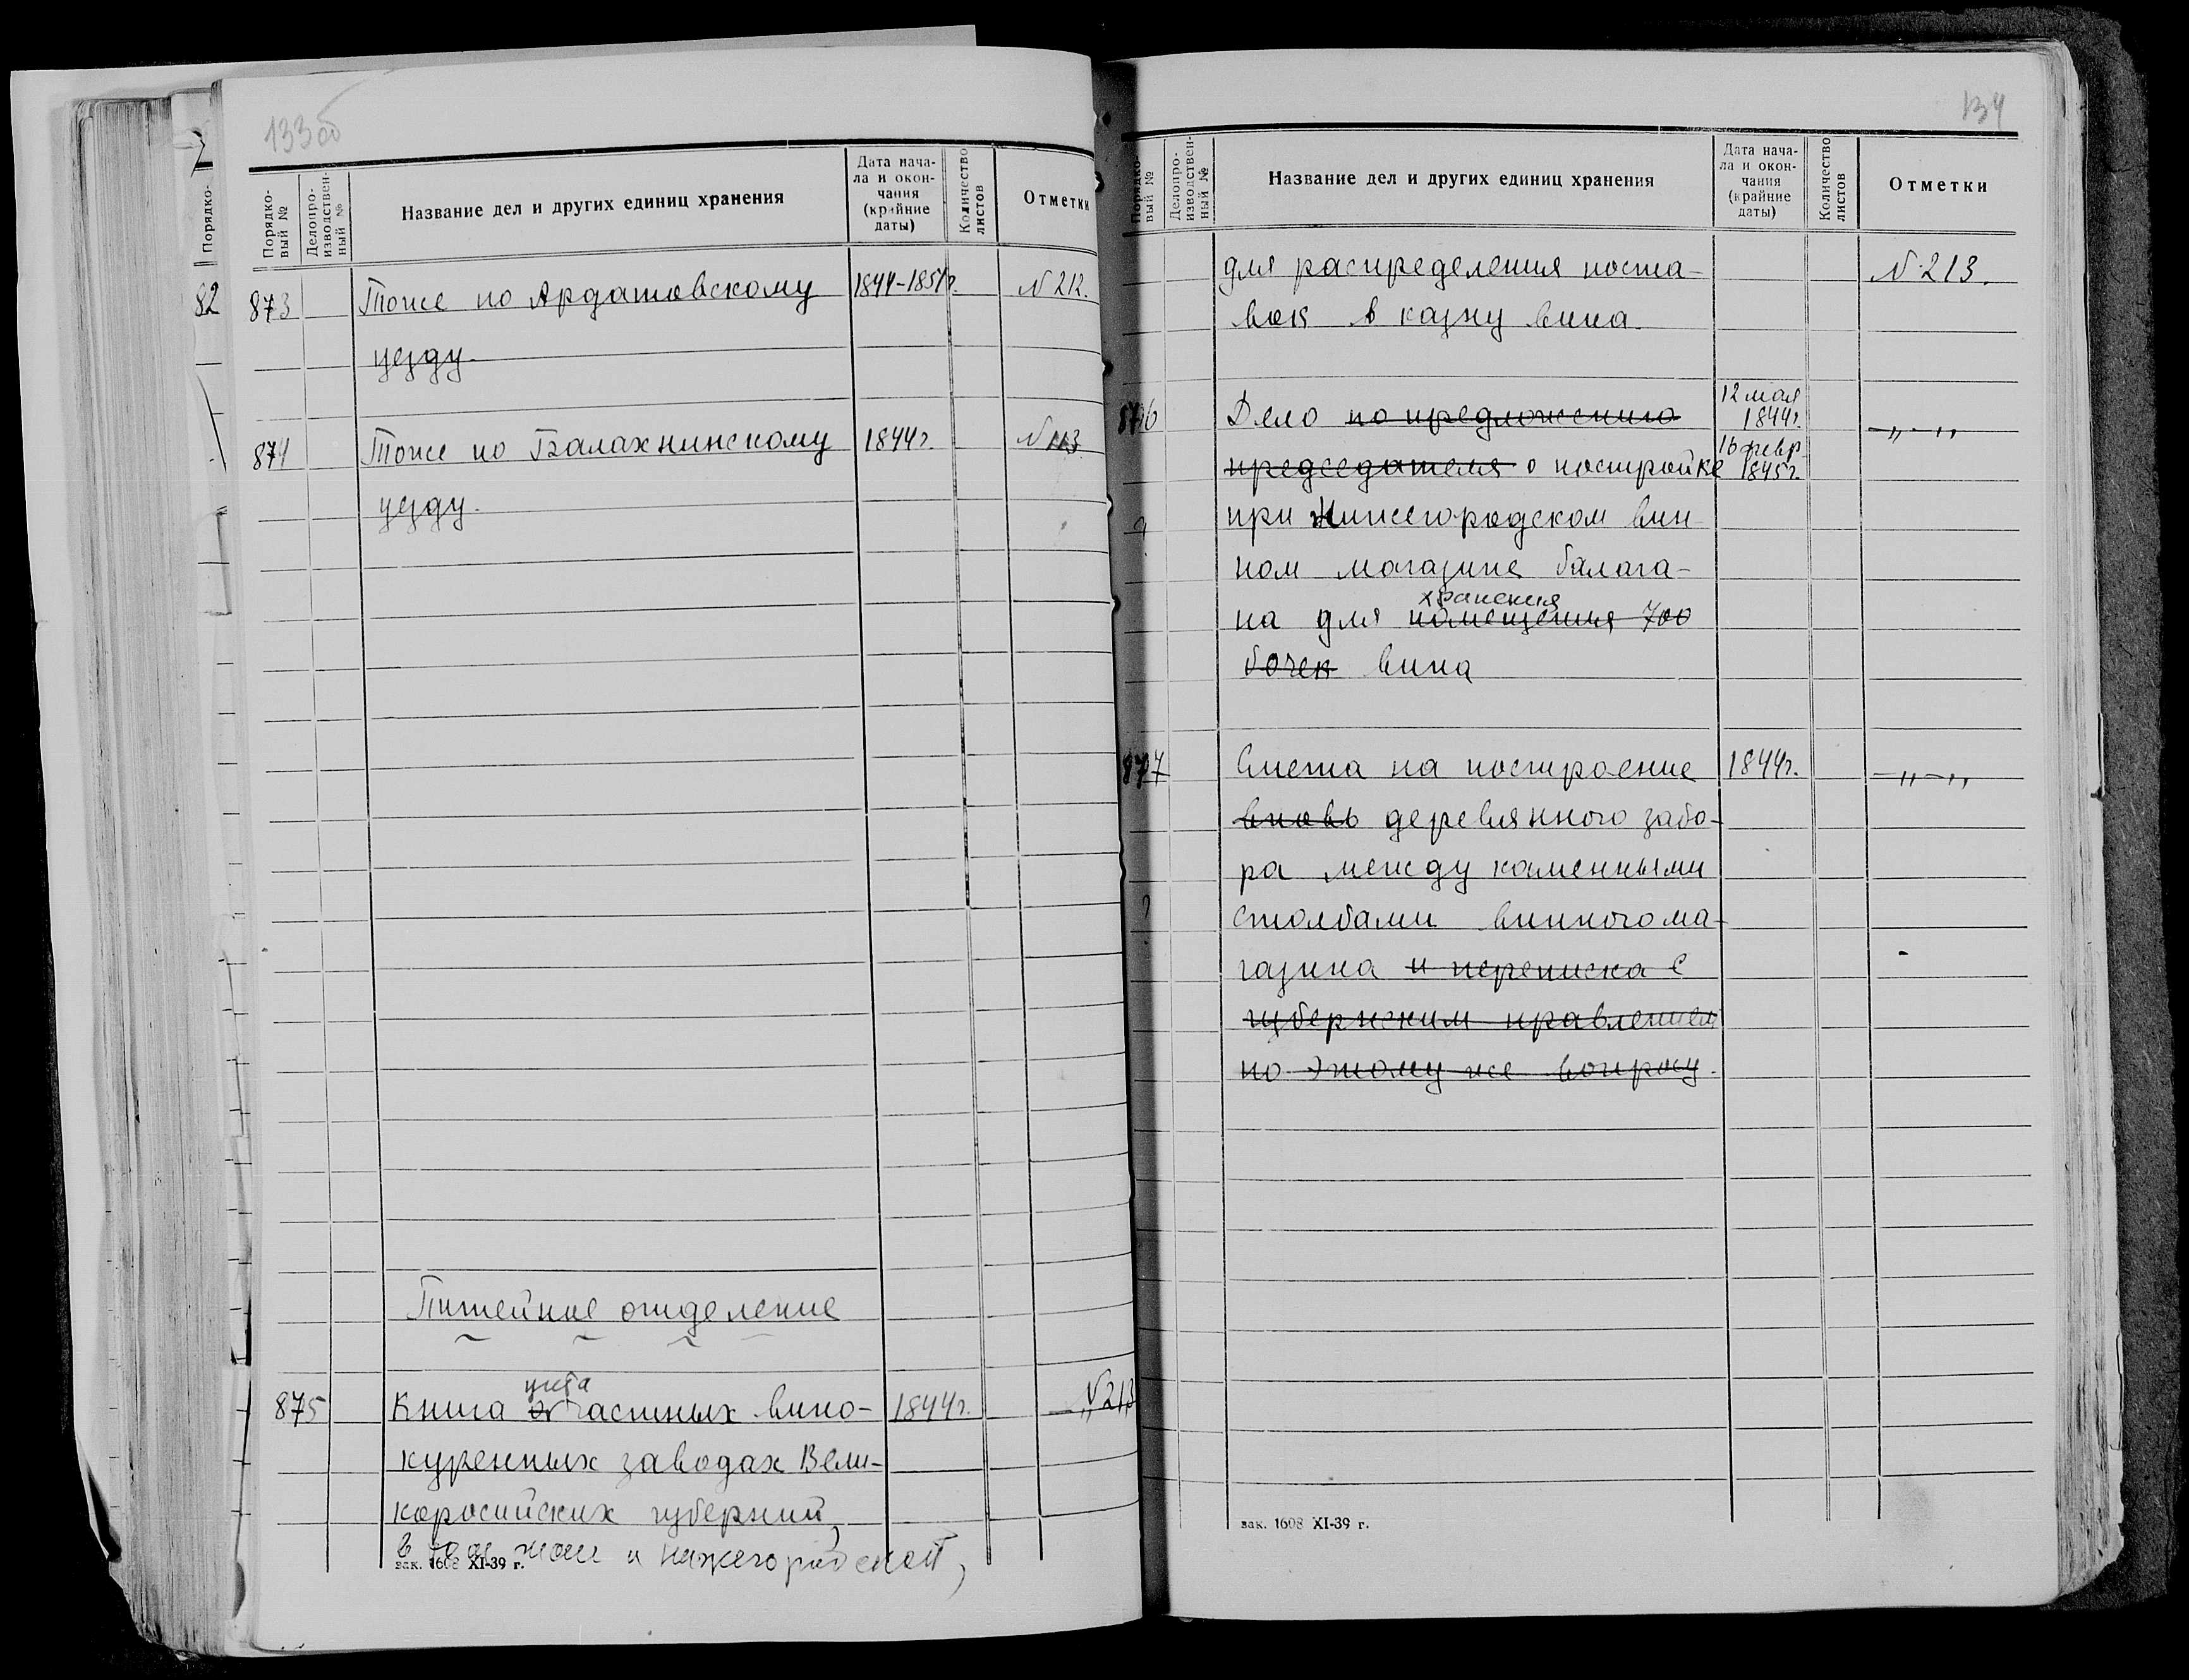 133об
Порядко-
Порядко-
вый №
Делопро-
изводствен-
ный №
Название дел и других единиц хранения
Дата нача-
ла и окон-
чания
(крайние
даты)
Количество
листов
Отметки
82
873 Тоже по Ардатовскому 1844-1851г. N 212.
уезду.
874 Тоже по Балахнинскому 1844г. N 113
уезду.
Питейное отделение
875 Книга частных вино- 1844г. N 213
куренных заводах Вели-
коросийских губерний,
в том числе и нижегородской,
зак. 1608 XI-39 г.
134
Порядко-
вый №
Делопро-
изводствен-
ный №
Название дел и других единиц хранения
Дата нача-
ла и окон-
чания
(крайние
даты)
Количество
листов
Отметки
для распределения поста- N 213.
вок в казну вина.
876 Дело по предложению 12 мая 1844г. —„—„
председателя о постройке 16 февр. 1845г.
при Нижегородском вин-
ном магазине балага-
хранения
на для помещения 700
бочек вина
877 Смета на построение 1844г. —„—„
вновь деревянного забо-
ра между каменными
столбами винного ма-
газина и переписка с
губернским правлением
по этому же вопросу.
зак. 1608 XI-39 г.